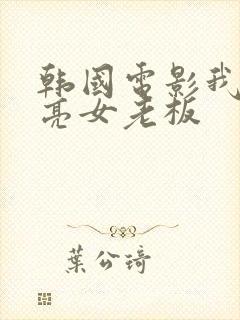 韩国电影我
亮女老板
葉公琦